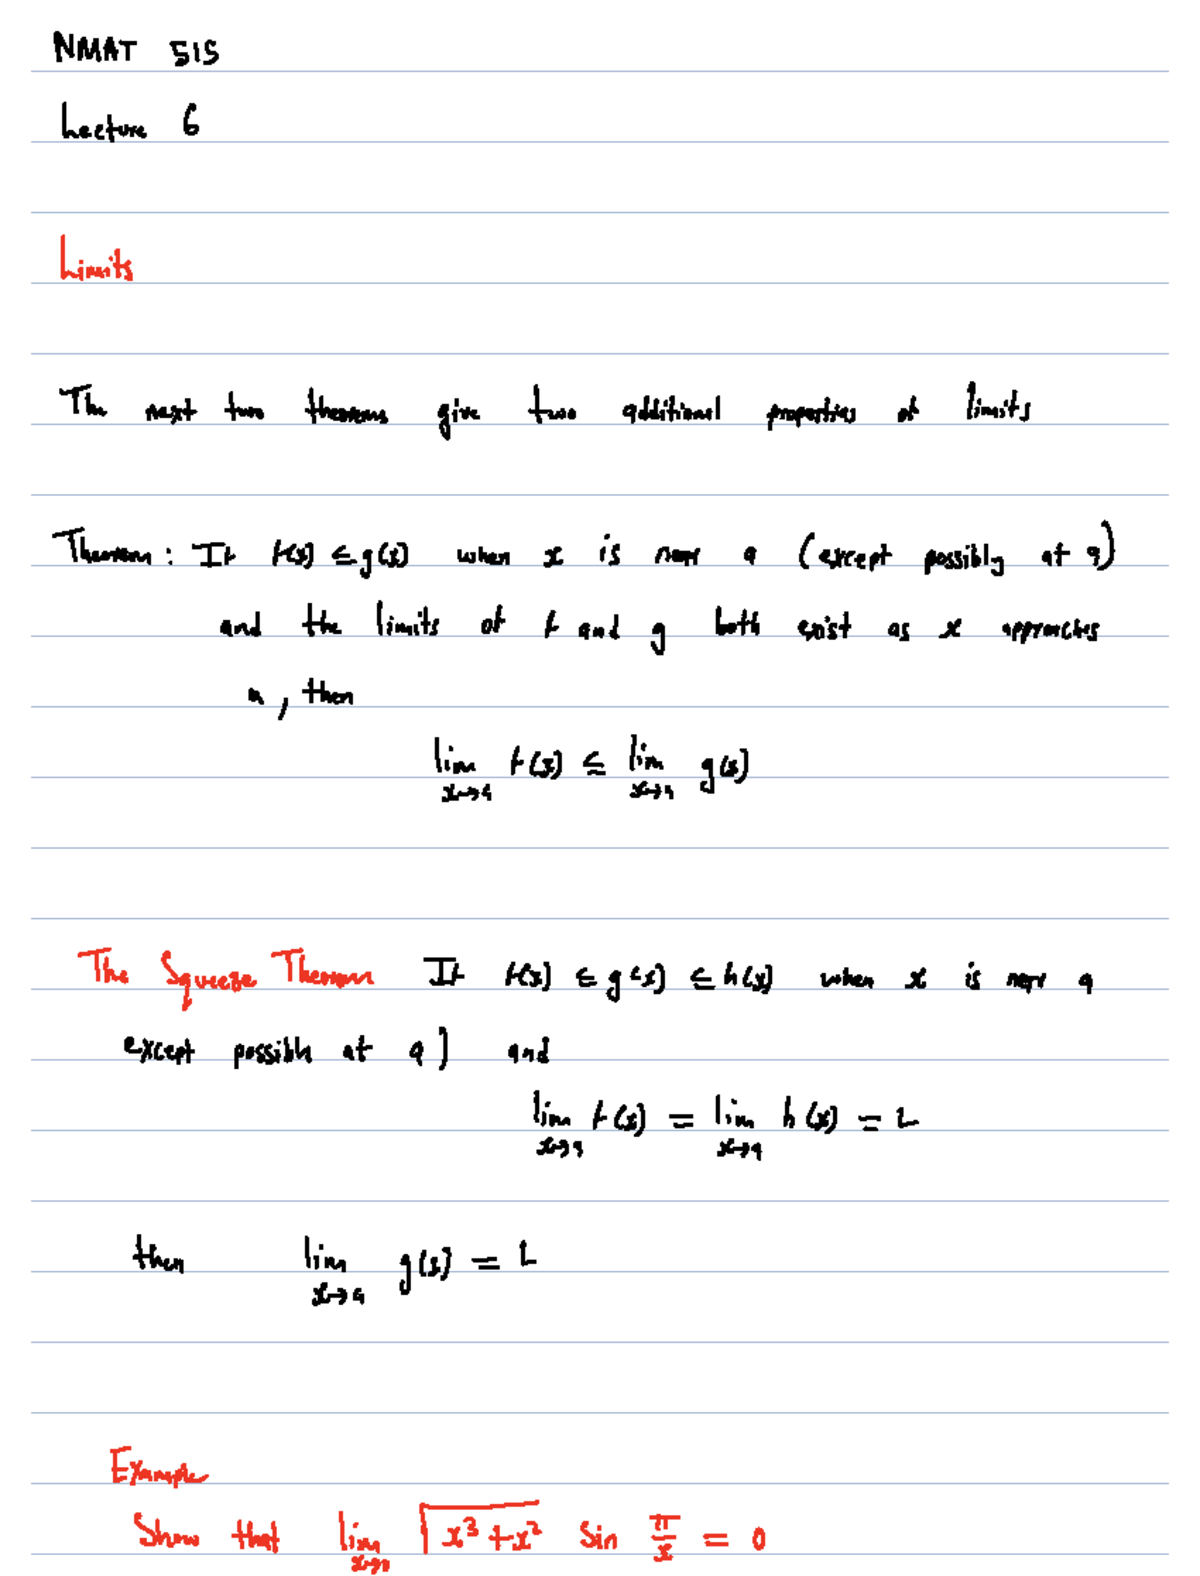 NMAT 515
Lecture 6
Limits
The next two theorems give two additional properties of limits
Theorem : If f(x) ≤ g(x) when x is near a (except possibly at a)
and the limits of f and g both exist as x approaches
a , then
lim x→a f(x) ≤ lim x→a g(x)
The Squeeze Theorem If f(x) ≤ g(x) ≤ h(x) when x is near a
except possible at a ) and
lim x→a f(x) = lim x→a h(x) = L
then lim x→a g(x) = L
Example
Show that lim x→0 √(x³+x²) sin π/x = 0